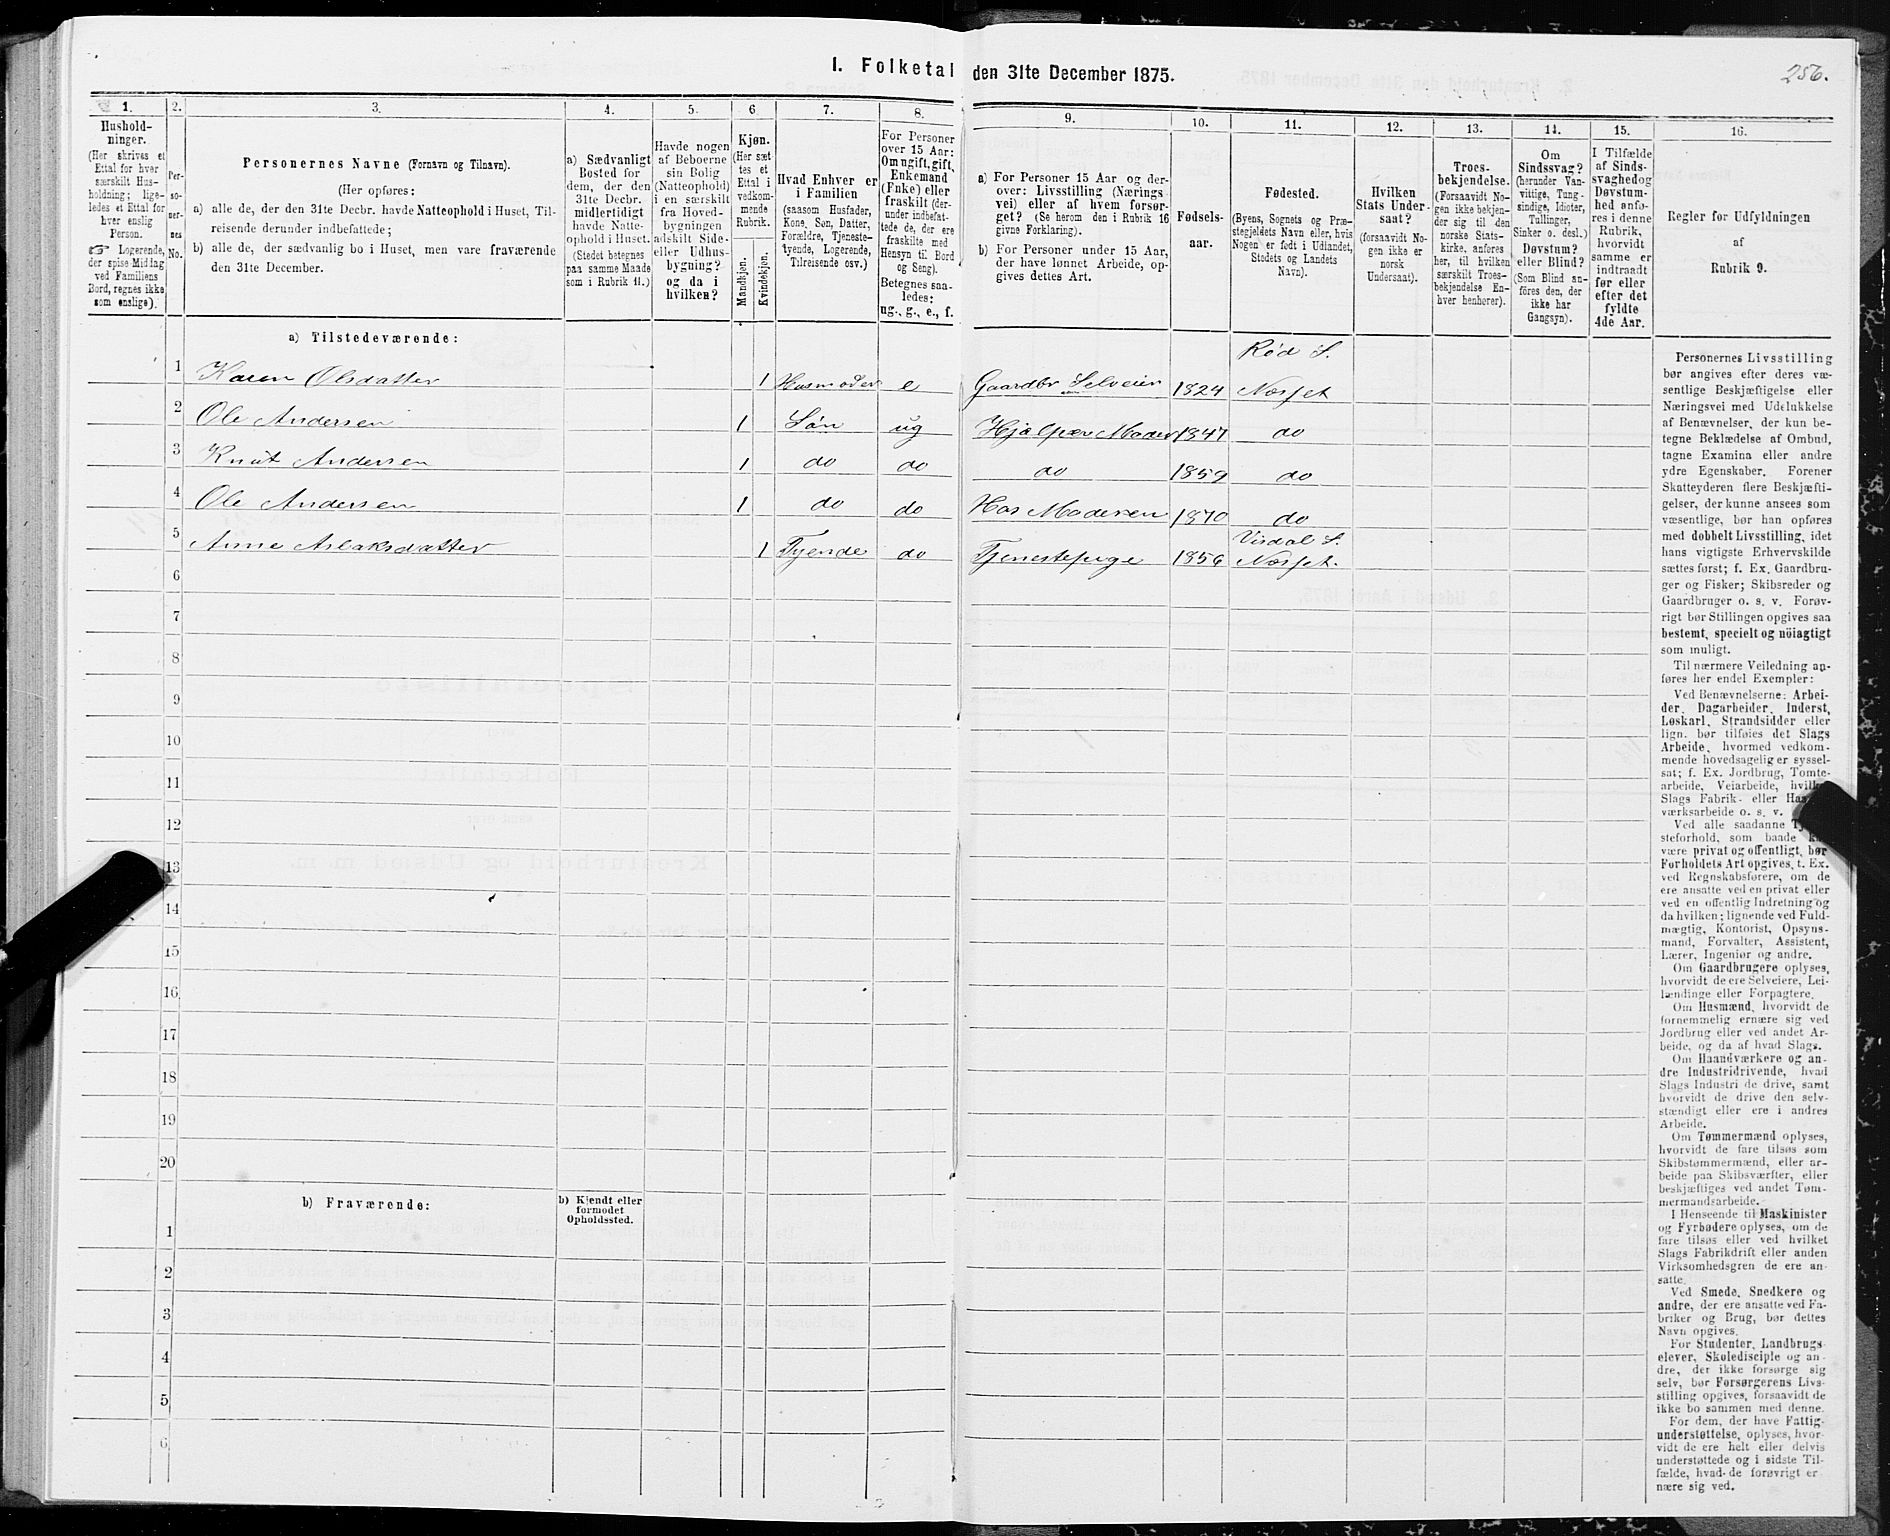 I. Folketal den 31te December 1875.
256.
1.
Husholdninger.
(Her skrives et
Ettal for hver
særskilt Husholdning; ligeledes et Ettal for
hver enslig
Person.
☞ Logerende,
der spise Middag
ved Familiens
Bord, regnes ikke
som enslige).
2.
Personernes
No.
3.
Personernes Navne (Fornavn og Tilnavn).
(Her opføres:
a) alle de, der den 31te Decbr. havde Natteophold i Huset, Tilreisende derunder indbefattede;
b) alle de, der sædvanlig bo i Huset, men vare fraværende
den 31te December.
4.
a) Sædvanligt
Bosted for
dem, der den
31te Decbr.
midlertidigt
havde Natteophold i Huset.
(Stedet betegnes
paa samme Maade
som i Rubrik 11.)
5.
Havde nogen
af Beboerne
sin Bolig
(Natteophold)
i en særskilt
fra Hovedbygningen
adskilt Side-
eller Udhusbygning?
og da i
hvilken?
6.
Kjøn.
(Her sættes et
Ettal i
vedkommende
Rubrik.
Mandkjøn.
Kvindekjøn.
7.
Hvad Enhver er
i Familien
(saasom Husfader,
Kone, Søn, Datter,
Forældre, Tjenestetyende, Logerende,
Tilreisende osv.)
8.
For Personer
over 15 Aar:
Om ugift, gift,
Enkemand
(Enke) eller
fraskilt (derunder indbefattede de, der ere
fraskilte med
Hensyn til Bord
og Seng).
Betegnes saaledes:
ug., g., e., f.
9.
a) For Personer 15 Aar og derover: Livsstilling (Næringsvei) eller af hvem forsørget? (Se herom den i Rubrik 16
givne Forklaring).
b) For Personer under 15 Aar,
der have lønnet Arbeide, opgives dettes Art.
10.
Fødselsaar.
11.
Fødested.
(Byens, Sognets og Præstegjeldets Navn eller, hvis
Nogen er født i Udlandet,
Stedets og Landets
Navn).
12.
Hvilken
Stats Undersaat?
(forsaavidt Nogen ikke er
norsk
Undersaat).
13.
Troesbekjendelse.
(Forsaavidt Nogen ikke bekjender sig til den
norske Statskirke, anføres
her, til hvilken
særskilt Troesbekjendelse Enhver henhører).
14.
Om
Sindssvag?
(herunder Vanvittige, Tungsindige, Idioter,
Tullinger,
Sinker o. desl.)
Døvstum?
eller Blind?
(Som Blind anføres den, der
ikke har
Gangsyn).
15.
I Tilfælde
af Sindssvaghed og
Døvstumhed anføres i denne
Rubrik,
hvorvidt
samme er
indtraadt
før eller
efter det
fyldte
4de Aar.
16.
Regler for Udfyldningen
af
Rubrik 9.
a) Tilstedeværende:
Rød S.
1 Karen Olsdatter 1 Husmoder e Gaardbr Selveier 1824 Næsset
2 Ole Andersen 1 Søn ug Hjælper Moder 1847 do
3 Knut Andersen 1 do do do 1859 do
4 Ole Andersen 1 do do Hos Moderen 1870 do
Visdal S.
5 Anne Aslaksdatter 1 Tyende do Tjenestepige 1856 Næsset.
6
7
8
9
10
11
12
13
14
15
16
17
18
19
20
b) Fraværende:
b) Kjendt eller
formodet
Opholdssted.
1
2
3
4
5
6
Personernes Livsstilling
bør angives efter deres væsentlige Beskjæftigelse eller
Næringsvei med Udelukkelse
af Benævnelser, der kun betegne Beklædelse af Ombud,
tagne Examina eller andre
ydre Egenskaber. Forener
Skatteyderen flere Beskjæftigelser, der kunne ansees som
væsentlige, bør han opføres
med dobbelt Livsstilling, idet
hans vigtigste Erhvervskilde
sættes først; f. Ex. Gaardbruger og Fisker; Skibsreder og
Gaardbruger o. s. v. Forøvrigt bør Stillingen opgives saa
bestemt, specielt og nöiagtigt
som muligt.
Til nærmere Veiledning anføres her endel Exempler:
Ved Benævnelserne: Arbeider, Dagarbeider, Inderst,
Løskarl, Strandsidder eller
lign. bør tilføies det Slags
Arbeide, hvormed vedkommende hovedsagelig er sysselsat; f. Ex. Jordbrug, Tomtearbeide, Veiarbeide, hvilket
Slags Fabrik- eller Haandværksarbeide o. s. v.
Ved alle saadanne Tjenesteforhold, som baade kan
være privat og offentligt, bør
Forholdets Art opgives, t. Ex.
ved Regnskabsførere, om de
ere ansatte ved en privat eller
ved en offentlig Indretning og
da hvilken; lignende ved Fuldmægtig, Kontorist, Opsynsmand, Forvalter, Assistent,
Lærer, Ingeniør og andre.
Om Gaardbrugere oplyses,
hvorvidt de ere Selveiere, Leilændinge eller Forpagtere.
Om Husmænd, hvorvidt de
fornemmelig ernære sig ved
Jordbrug eller ved andet Arbeide, og da af hvad Slags.
Om Haandværkere og andre Industridrivende, hvad
Slags Industri de drive, samt
hvorvidt de drive den selvstændigt eller ere i andres
Arbeide.
Om Tømmermænd oplyses,
hvorvidt de fare tilsøs som
Skibstømmermænd, eller arbeide paa Skibsværfter, eller
beskjæftiges ved andet Tømmermandsarbeide.
I Henseende til Maskinister
og Fyrbødere oplyses, om de
fare tilsøs eller ved hvilket
Slags Fabrikdrift eller anden
Virksomhedsgren de ere ansatte.
Ved Smede, Snedkere og
andre, der ere ansatte ved Fabriker og Brug, bør dettes
Navn opgives.
For Studenter, Landbrugselever, Skoledisciple og andre, der ikke forsørge sig
selv, bør Forsørgerens Livsstilling opgives, forsaavidt de
ikke bo sammen med denne.
For dem, der have Fattigunderstøttelse, oplyses, hvorvidt de ere helt eller delvis
understøttede og i sidste Tilfælde, hvad de forøvrigt ernære sig ved.